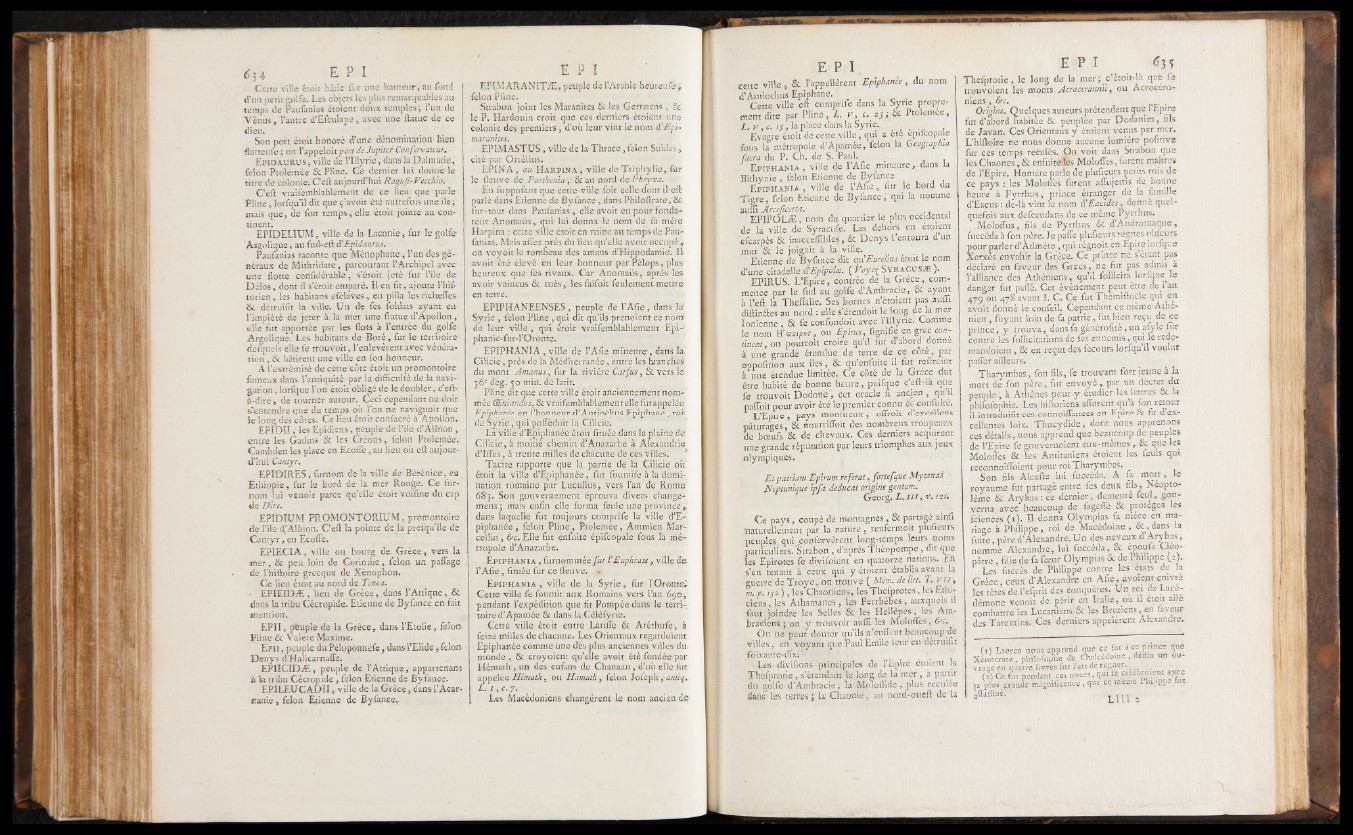 634 E P I
Cette ville étoit bâtie sur une hauteur, au fond
d'un petit golfe. Les objets les plus remarquables au
temps de Pausanias étoient deux temples; l'un de
Vénus, l'autre d'Esculape, avec une statue de ce
dieu.
Son port étoit honoré d'une dénomination bien
flatteuse; on l'appeloit port de Jupiter Conservateur.
EPIDAURUS, ville de l'Illyrie, dans la Dalmatie,
selon Ptolemée & Pline. Ce dernier lui donne le
titre de colonie. C'est aujourd'hui Ragusi-Vecchio.
C'est vraisemblablement de ce lieu que parle
Pline, lorsqu'il dit que ç'avoit été autrefois une île;
mais que, de son temps, elle étoit jointe au con-
tinent.
EPIDELIUM, ville de la Laconie, sur le golfe
Argolique, au sud-est d'Epidaurus.
Pausanias raconte que Ménophane, l'un des gé-
néraux de Mithridate, parcourant l'Archipel avec
une flotte considérable, s'étoit jeté sur l'île de
Délos, dont il s'étoit emparé. Il en fit, ajoute l'his-
torien, les habitans esclaves, en pilla les richesses
& détruisit la ville. Un de ses soldats ayant eu
l'impiété de jeter à la mer une statue d'Apollon,
elle fut apportée par les flots à l'entrée du golfe
Argolique. Les habitans de Boré, sur le territoire
desquels elle se trouvoit, l'enlevèrent avec vénéra-
tion, & bâtirent une ville en son honneur.
A l'extrémité de cette côte étoit un promontoire
fameux dans l'antiquité par la difficulté de la navi-
gation, lorsque l'on étoit obligé de le doubler, c'est-
à-dire, de tourner autour. Ceci cependant ne doit
s'entendre que du temps où l'on ne naviguoit que
le long des côtes. Ce lieu étoit consacré à Apollon.
EPIDII, les Epidiens, peuple de l'île d'Albion,
entre les Gadins & les Créons, selon Ptolemée.
Cambden les place en Ecosse, au lieu où est aujour-
d'hui Cantyr.
EPIDIRES, surnom de la ville de Bérénice, en
Ethiopie, sur le bord de la mer Rouge. Ce sur-
nom lui venoit parce qu'elle étoit voisine du cap
de Dire.
EPIDIUM PROMONTORIUM, promontoire
de l'île d'Albion. C'est la pointe de la presqu'île de
Cantyr, en Ecosse.
EPIECIA, ville ou bourg de Grèce, vers la
mer, & peu loin de Corinthe, selon un passage
de l'histoire grecque de Xénophon.
Ce lieu étoit au nord de Tenea.
EPIEIDÆ, lieu de Grèce, dans l'Attique, &
dans la tribu Cécropide. Etienne de Bysance en fait
mention.
EPII, peuple de la Grèce, dans l'Etolie, selon
Pline & Valère Maxime.
EPII, peuple du Péloponnèse, dans l'Elide, selon
Denys d'Halicarnasse.
EPIICIDÆ, peuple de l'Attique, appartenant
à la tribu Cécropide, selon Etienne de Bysance.
EPILEUCADII, ville de la Grèce, dans l'Acar-
nanie, selon Etienne de Bysance.
E P I
EPIMARANITÆ, peuple de l'Arabie heureuse,
selon Pline.
Strabon joint les Maranites & les Germens, &
le P. Hardouin croit que ces derniers étoient une
colonie des premiers, d'où leur vint le nom d'Epi-
maranites.
EPIMASTUS, ville de la Thrace, selon Suidas,
cité par Ortélius.
EPINA, ou HARPINA, ville de Triphylie, sur
le fleuve de Parthenia, & au nord de Phryxa.
En supposant que cette ville soit celle dont il est
parlé dans Etienne de Bysance, dans Philostrate, &
sur-tout dans Pausanias, elle avoit eu pour fonda-
teur Ænomaüs, qui lui donna le nom de sa mère
Harpina: cette ville étoit en ruine au temps de Pau-
sanias. Mais assez près du lieu qu'elle avoit occupé,
on voyoit le tombeau des amans d'Hippodamie. Il
avoit été élevé en leur honneur par Pélops, plus
heureux que ses rivaux. Car Ænomaüs, après les
avoir vaincus & tués, les faisoit seulement mettre
en terre.
EPIPHANEENSES, peuple de l'Asie, dans la
Syrie, selon Pline, qui dit qu'ils prenoient ce nom
de leur ville, qui étoit vraisemblablement Epi-
phanie-sur-l'Oronte.
EPIPHANIA, ville de l'Asie mineure, dans la
Cilicie, près de la Méditerranée, entre les branches
du mont Amanus, sur la rivière Carsus, & vers le
36e deg. 50 min. de latit.
Pline dit que cette ville étoit anciennement nom-
mée Œniandos, & vraisemblablement elle fut appelée
Epiphanée en l'honneur d'Antiochus Epiphane, roi
de Syrie, qui possédoit la Cilicie.
La ville d'Epiphanée étoit située dans la plaine de
Cilicie, à moitié chemin d'Anazarbe à Alexandrie
d'Issus, à trente milles de chacune de ces villes.
Tacite rapporte que la partie de la Cilicie où
étoit la ville d'Epiphanée, fut soumise à la domi-
nation romaine par Lucullus, vers l'an de Rome
683. Son gouvernement éprouva divers change-
mens; mais enfin elle forma seule une province,
dans laquelle fut toujours comprise la ville d'E-
piphanée, selon Pline, Ptolemée, Ammien Mar-
cellin, &c. Elle fut ensuite épiscopale sous la mé-
tropole d'Anazarbe.
EPIPHANIA, surnommée sur l'Euphrate, ville de
l'Asie, située sur ce fleuve.
EPIPHANIA, ville de la Syrie, sur l'Oronte.
Cette ville se soumit aux Romains vers l'an 690,
pendant l'expédition que fit Pompée dans le terri-
toire d'Apamée & dans la Célésyrie.
Cette ville étoit entre Larisse & Aréthuse, à
seize milles de chacune. Les Orientaux regardoient
Epiphanée comme une des plus anciennes villes du
monde, & croyoient qu'elle avoit été fondée par
Hémath, un des enfans de Chanaan, d'où elle fut
appelée Hémath, ou Hamath, selon Joseph, antiq.
L. I, c. 7.
Les Macédoniens changèrent le nom ancien de
E P I
cette ville, & l'appellèrent Epiphanée, du nom
d'Antiochus Epiphane.
Cette ville est comprise dans la Syrie propre-
ment dite par Pline, L. V, c. 23; & Ptolemée,
L. V, c. 15, la place dans la Syrie.
Evagre étoit de cette ville, qui a été épiscopale
sous la métropole d'Apamée, selon la Geographia
sacra du P. Ch. de S. Paul.
EPIPHANIA, ville de l'Asie mineure, dans la
Bithynie, selon Etienne de Bysance.
EPIPHANIA, ville de l'Asie, sur le bord du
Tigre, selon Etienne de Bysance, qui la nomme
aussi Arcesicerta.
EPIPOLÆ, nom du quartier le plus occidental
de la ville de Syracuse. Les dehors en étoient
escarpés & inaccessibles, & Denys l'entoura d'un
mur & le joignit à la ville.
Etienne de Bysance dit qu'Euralus étoit le nom
d'une citadelle d'Epipola. (Voyez SYRACUSÆ).
EPIRUS. L'Epire, contrée de la Grèce, com-
mence par le sud au golfe d'Ambracie, & ayant
à l'est la Thessalie. Ses bornes n'étoient pas aussi
distinctes au nord: elle s'étendoit le long de la mer
Ionienne, & se confondoit avec l'Illyrie. Comme
le nom Ηπειρος, ou Epirus, signifie en grec con-
tinent, on pourroit croire qu'il fut d'abord donné
à une grande étendue de terre de ce côté, par
opposition aux îles, & qu'ensuite il fut restreint
à une étendue limitée. Ce côté de la Grèce dut
être habité de bonne heure, puisque c'est-là que
se trouvoit Dodone, cet oracle si ancien, qu'il
passoit pour avoir été le premier connu & consulté.
L'Epire, pays montueux, offroit d'excellens
pâturages, & nourrissoit des nombreux troupeaux
de bœufs & de chevaux. Ces derniers acquirent
une grande réputation par leurs triomphes aux jeux
olympiques.
Et patriam Epirum referat, fortesque Mycenas
Neptunique ipsâ deducat origine gentem.
Georg. L. III, v. 121.
Ce pays, coupé de montagnes, & partagé ainsi
naturellement par la nature, renfermoit plusieurs
peuples qui conservèrent long-temps leurs noms
particuliers. Strabon, d'après Théopompe, dit que
les Epirotes se divisoient en quatorze nations. En
s'en tenant à ceux qui y étoient établis avant la
guerre de Troye, on trouve (Mém. de litt. T. VII,
m. p. 152), les Chaoniens, les Thesprotes, les Ethi-
ciens, les Athamanes, les Perrhèbes, auxquels il
faut joindre les Selles & les Hellèpes, les Am-
braciens; on y trouvoit aussi les Molosses, &c.
On ne peut douter qu'ils n'eussent beaucoup de
villes, en voyant que Paul Emile leur en détruisit
soixante-dix.
Les divisions principales de l'Epire étoient la
Thesprotie, s'étendant le long de la mer, à partir
du golfe d'Ambracie; la Molosside, plus reculée
dans les terres; la Chaonie, au nord-ouest de la
E P I 635
Thesprotie, le long de la mer; c'étoit-là que se
trouvoient les monts Acroceraunii, ou Acrocéra-
niens, &c.
Origine. Quelques auteurs prétendent que l'Epire
fut d'abord habitée & peuplée par Dodanim, fils
de Javan. Ces Orientaux y étoient venus par mer.
L'histoire ne nous donne aucune lumière positive
sur ces temps reculés. On voit dans Strabon que
les Chaones, & ensuite les Molosses, furent maîtres
de l'Epire. Homère parle de plusieurs petits rois de
ce pays: les Molosses furent assujettis de bonne
heure à Pyrrhus, prince étranger de la famille
d'Eacus: de-là vint le nom d'Eacides, donné quel-
quefois aux descendans de ce même Pyrrhus.
Molossus, fils de Pyrrhus & d'Andromaque,
succéda à son père. Je passe plusieurs règnes obscurs
pour parler d'Admète, qui régnoit en Epire lorsque
Xerxès envahit la Grèce. Ce prince ne s'étant pas
déclaré en faveur des Grecs, ne fut pas admis à
l'alliance des Athéniens, qu'il sollicita lorsque le
danger fut passé. Cet événement peut être de l'an
479 ou 478 avant J. C. Ce fut Thémistocle qui en
avoit donné le conseil. Cependant ce même Athé-
nien, fuyant loin de sa patrie, fut bien reçu de ce
prince, y trouva, dans sa générosité, un asyle sûr
contre les sollicitations de ses ennemis, qui le rede-
mandoient, & en reçut des secours lorsqu'il voulut
passer ailleurs.
Tharymbas, son fils, se trouvant fort jeune à la
mort de son père, fut envoyé, par un décret du
peuple, à Athènes pour y étudier les lettres & la
philosophie. Les historiens assurent qu'à son retour
il introduisit ces connoissances en Epire & fit d'ex-
cellentes loix. Thucydide, dont nous apprenons
ces détails, nous apprend que beaucoup de peuples
de l'Epire se gouvernoient eux-mêmes, & que les
Molosses & les Antitaniens étoient les seuls qui
reconnoissoient pour roi Tharymbas.
Son fils Alcesle lui succéda. A sa mort, le
royaume fut partagé entre ses deux fils, Néopto-
lème & Arybas: ce dernier, demeuré seul, gou-
verna avec beaucoup de sagesse & protégea les
sciences (1). Il donna Olympias sa nièce en ma-
riage à Philippe, roi de Macédoine, &, dans la
suite, père d'Alexandre. Un des neveux d'Arybas,
nommé Alexandre, lui succéda, & épousa Cléo-
pâtre, fille de sa sœur Olympias & de Philippe (2).
Les succès de Philippe contre les états de la
Grèce, ceux d'Alexandre en Asie, avoient enivré
les têtes de l'esprit des conquêtes. Un roi de Lacé-
démone venoit de périr en Italie, où il étoit allé
combattre les Lucaniens & les Brutiens, en faveur
des Tarentins. Ces derniers appelèrent Alexandre.
(1) Laerce nous apprend que ce fut à ce prince que
Xénocrate, philosophe de Chalcédoine, dédia un ou-
vrage en quatre livres sur l'art de régner.
(2) Ce fut pendant ces noces, qui se célébroient avec
la plus grande magnificence, que ce même Philippe fut
assassiné.
LLll 2